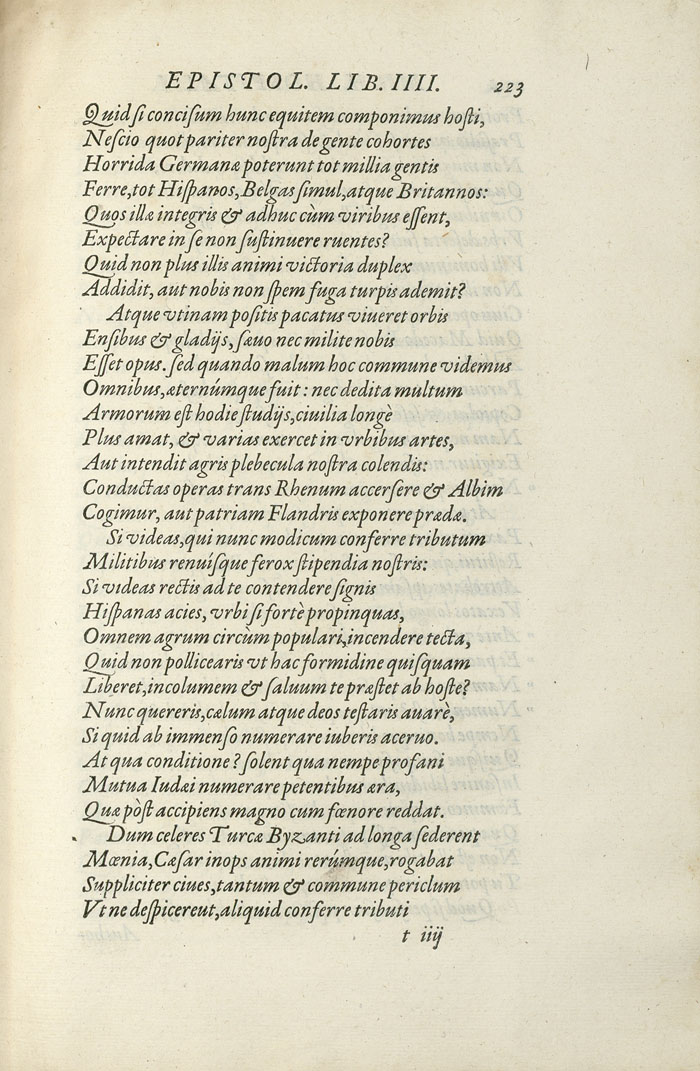 EPISTOL. LIB. IIII. 223
Quid si concisum hunc equitem componimus hosti,
Nescio quot pariter nostra de gente cohortes
Horrida Germanæ poterunt tot millia gentis
Ferre, tot Hispanos, Belgas simul, atque Britannos:
Quos illæ integris & adhuc cùm viribus essent,
Expectare in se non sustinuere ruentes?
Quid non plus illis animi victoria duplex
Addidit, aut nobis non spem fuga turpis ademit?
Atque vtinam positis pacatus viueret orbis
Ensibus & gladijs, sæuo nec milite nobis
Esset opus. sed quando malum hoc commune videmus
Omnibus, æternúmque fuit: nec dedita multum
Armorum est hodie studijs, ciuilia longè
Plus amat, & varias exercet in vrbibus artes,
Aut intendit agris plebecula nostra colendis:
Conductas operas trans Rhenum accersere & Albim
Cogimur, aut patriam Flandris exponere prædæ.
Si videas, qui nunc modicum conferre tributum
Militibus renuísque ferox stipendia nostris:
Si videas rectis ad te contendere signis
Hispanas acies, vrbi si fortè propinquas,
Omnem agrum circùm populari, incendere tecta,
Quid non pollicearis vt hac formidine quisquam
Liberet, incolumem & saluum te præstet ab hoste?
Nunc quereris, cælum atque deos testaris auarè,
Si quid ab immenso numerare iuberis aceruo.
At qua conditione? solent qua nempe profani
Mutua Iudæi numerare petentibus æra,
Quæ pòst accipiens magno cum fœnore reddat.
Dum celeres Turcæ Byzanti ad longa sederent
Mœnia, Cæsar inops animi rerúmque, rogabat
Suppliciter ciues, tantum & commune periclum
Vt ne despicereut, aliquid conferre tributi
t iiij